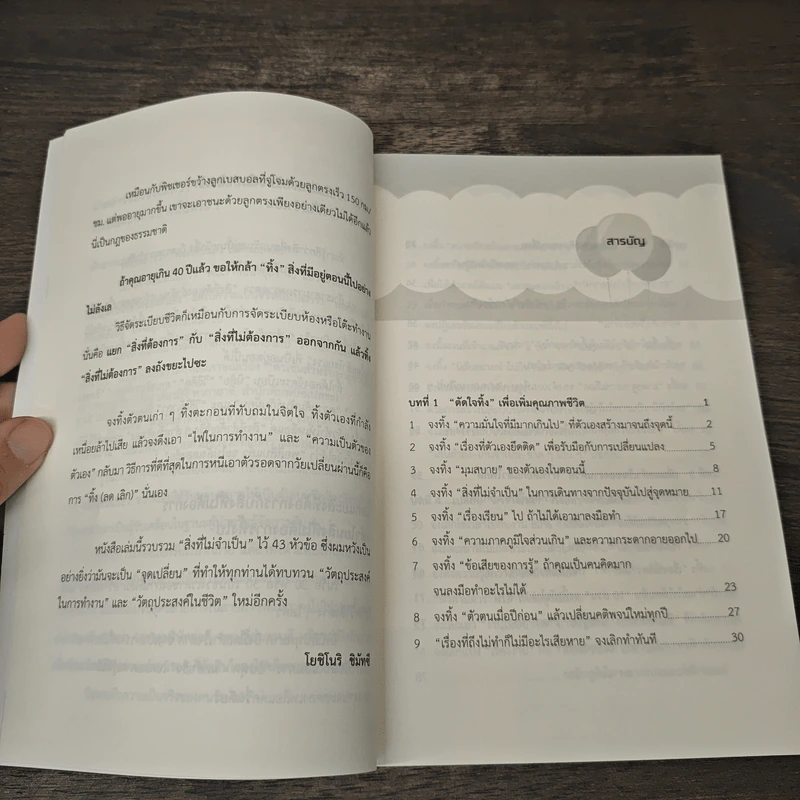 เหมือนกับพิชเชอร์ขว้างลูกเบสบอลที่จู่โจมด้วยลูกตรงเร็ว 150 กม./
ชม. แต่พออายุมากขึ้น เขาจะเอาชนะด้วยลูกตรงเพียงอย่างเดียวไม่ได้อีกแล้ว
นี่เป็นกฎของธรรมชาติ
ถ้าคุณอายุเกิน 40 ปีแล้ว ขอให้กล้า “ทิ้ง” สิ่งที่มีอยู่ตอนนี้ไปอย่าง
ไม่ลังเล
วิธีจัดระเบียบชีวิตก็เหมือนกับการจัดระเบียบห้องหรือโต๊ะทำงาน
นั่นคือ แยก “สิ่งที่ต้องการ” กับ “สิ่งที่ไม่ต้องการ” ออกจากกัน แล้วทิ้ง
“สิ่งที่ไม่ต้องการ” ลงถังขยะไปซะ
จงทิ้งตัวตนเก่า ๆ ทิ้งตะกอนที่ทับถมในจิตใจ ทิ้งตัวเองที่กำลัง
เหนื่อยล้าไปเสีย แล้วจงดึงเอา “ไฟในการทำงาน” และ “ความเป็นตัวของ
ตัวเอง” กลับมา วิธีการที่ดีที่สุดในการหนีเอาตัวรอดจากวัยเปลี่ยนผ่านนี้ก็คือ
การ “ทิ้ง (ลด เลิก)” นั่นเอง
หนังสือเล่มนี้รวบรวม “สิ่งที่ไม่จำเป็น” ไว้ 43 หัวข้อ ซึ่งผมหวังเป็น
อย่างยิ่งว่ามันจะเป็น “จุดเปลี่ยน” ที่ทำให้ทุกท่านได้ทบทวน “วัตถุประสงค์
ในการทำงาน” และ “วัตถุประสงค์ในชีวิต” ใหม่อีกครั้ง
โยชิโนริ ชิมัทซึ
สารบัญ
บทที่ 1 “ตัดใจทิ้ง” เพื่อเพิ่มคุณภาพชีวิต 1
1 จงทิ้ง “ความมั่นใจที่มีมากเกินไป” ที่ตัวเองสร้างมาจนถึงจุดนี้ 2
2 จงทิ้ง “เรื่องที่ตัวเองยึดติด” เพื่อรับมือกับการเปลี่ยนแปลง 5
3 จงทิ้ง “มุมสบาย” ของตัวเองในตอนนี้ 8
4 จงทิ้ง “สิ่งที่ไม่จำเป็น” ในการเดินทางจากปัจจุบันไปสู่จุดหมาย 11
5 จงทิ้ง “เรื่องเรียน” ไป ถ้าไม่ได้เอามาลงมือทำ 17
6 จงทิ้ง “ความภาคภูมิใจส่วนเกิน” และความกระดากอายออกไป 20
7 จงทิ้ง “ข้อเสียของการรู้” ถ้าคุณเป็นคนคิดมาก
จนลงมือทำอะไรไม่ได้ 23
8 จงทิ้ง “ตัวตนเมื่อปีก่อน” แล้วเปลี่ยนคติพจน์ใหม่ทุกปี 27
9 “เรื่องที่ถึงไม่ทำก็ไม่มีอะไรเสียหาย” จงเลิกทำทันที 30